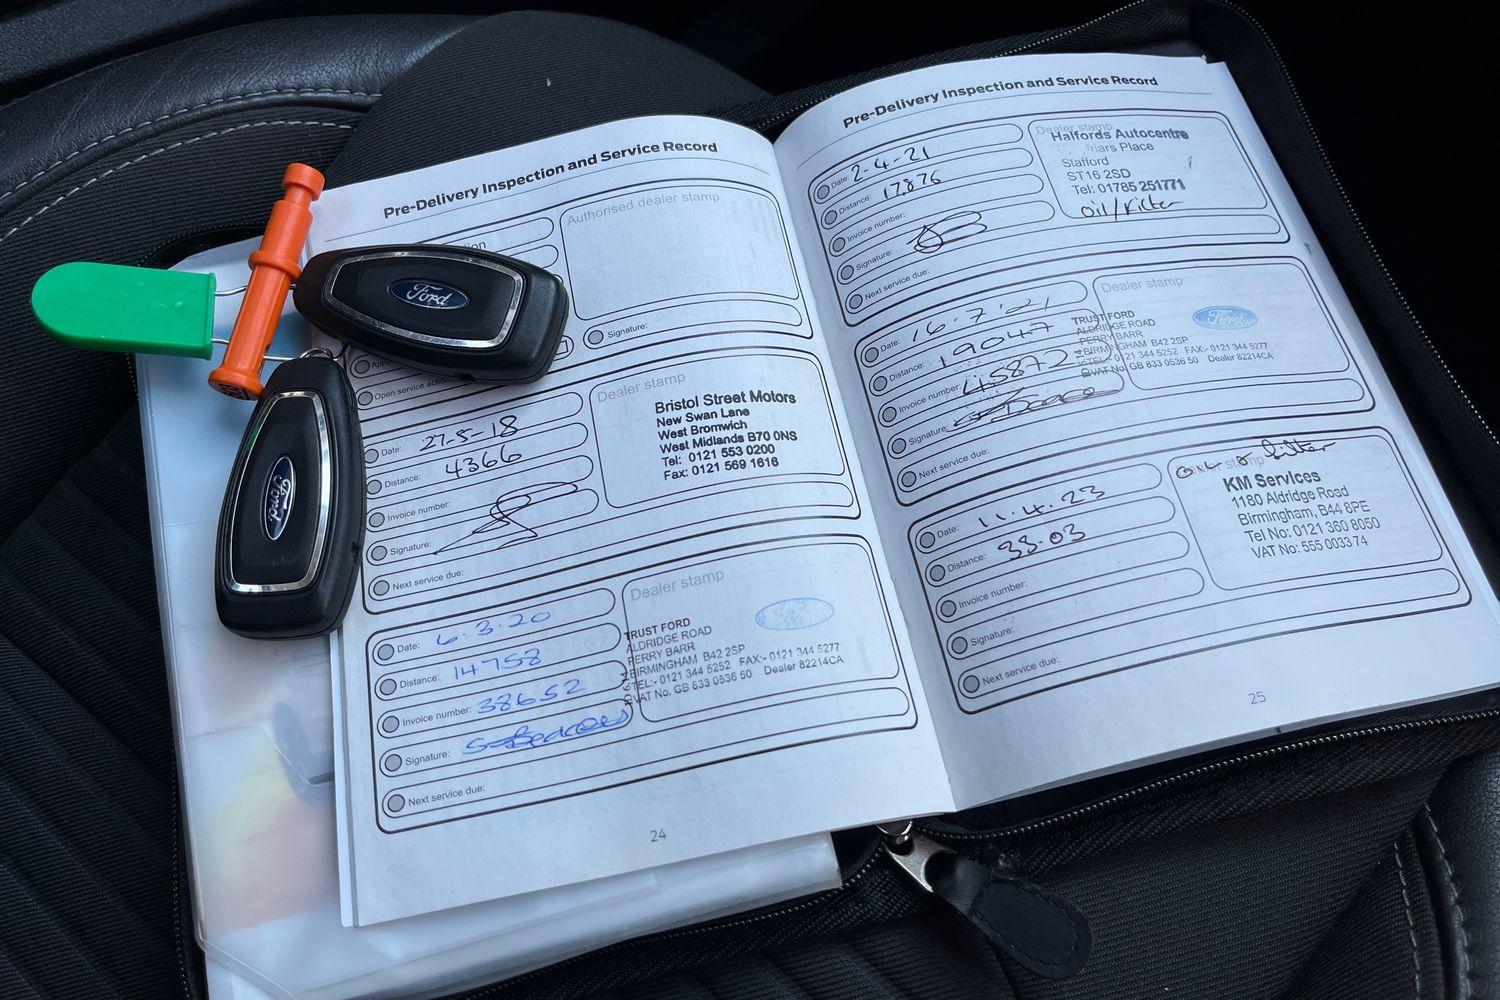 Pre-Delivery Inspection and Service Record
Authorised dealer stamp
Signature:
Open service action
Dealer stamp
Date: 27-5-18
Distance: 4366
Invoice number:
Signature:
Next service due:
Bristol Street Motors
New Swan Lane
West Bromwich
West Midlands B70 0NS
Tel: 0121 553 0200
Fax: 0121 569 1616
Dealer stamp
Date: 6.3.20
Distance: 14758
Invoice number: 38652
Signature:
Next service due:
TRUST FORD
ALDRIDGE ROAD
PERRY BARR
BIRMINGHAM B42 2SP
TEL:- 0121 344 5252 FAX:- 0121 344 5277
VAT No. GB 833 0536 50 Dealer 82214CA
24
Ford
Ford
Pre-Delivery Inspection and Service Record
Date: 2-4-21
Distance: 17876
Invoice number:
Signature:
Next service due:
Dealer stamp
Halfords Autocentre
Friars Place
Stafford
ST16 2SD
Tel: 01785 251771
Oil/Filter
Date: 16.7.21
Distance: 19047
Invoice number: 45872
Signature:
Next service due:
Dealer stamp
Ford
TRUST FORD
ALDRIDGE ROAD
PERRY BARR
BIRMINGHAM B42 2SP
TEL:- 0121 344 5252 FAX:- 0121 344 5277
VAT No. GB 833 0536 50 Dealer 82214CA
Date: 11.4.23
Distance: 33.03
Invoice number:
Signature:
Next service due:
Dealer stamp
Oil & filter
KM Services
1180 Aldridge Road
Birmingham, B44 8PE
Tel No: 0121 360 8050
VAT No: 555 0033 74
25